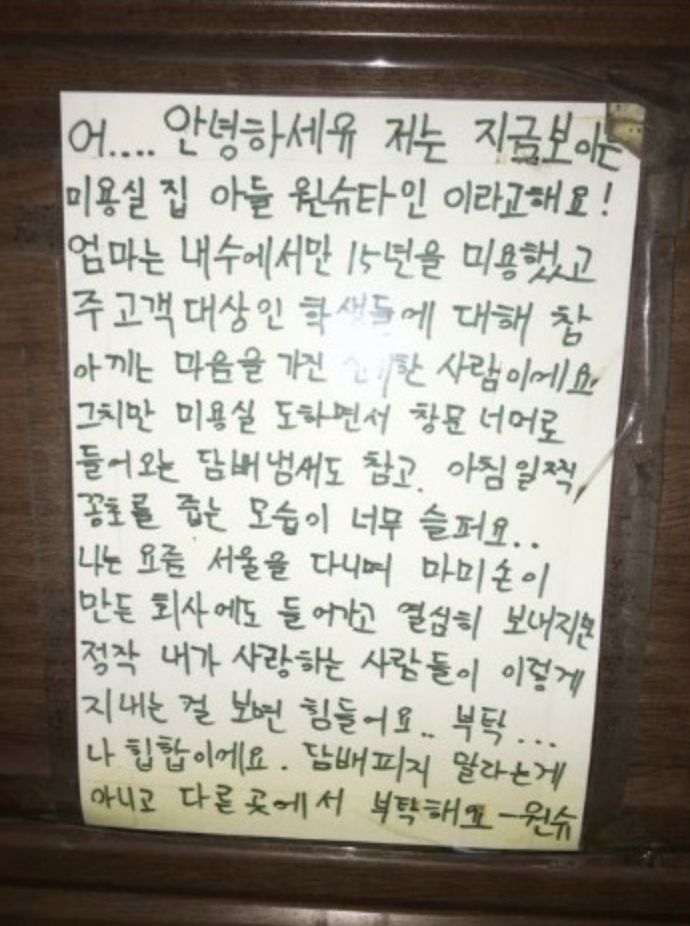 어.... 안녕하세유 저는 지금보이는
미용실 집 아들 원슈타인 이라고해요!
엄마는 내수에서만 15년을 미용했고
주고객대상인 학생들에 대해 참
아끼는 마음을 가진 신기한 사람이에요
그치만 미용실 도하면서 창문너머로
들어오는 담배냄새도 참고. 아침일찍
꽁초를 줍는 모습이 너무 슬퍼요..
나는 요즘 서울을 다니며 마미손이
만든 회사에도 들어가고 열심히 보내지만
정작 내가 사랑하는 사람들이 이렇게
지내는 걸 보면 힘들어요.. 부탁...
나 힙합이에요. 담배피지 말라는게
아니고 다른곳에서 부탁해요 -원슈